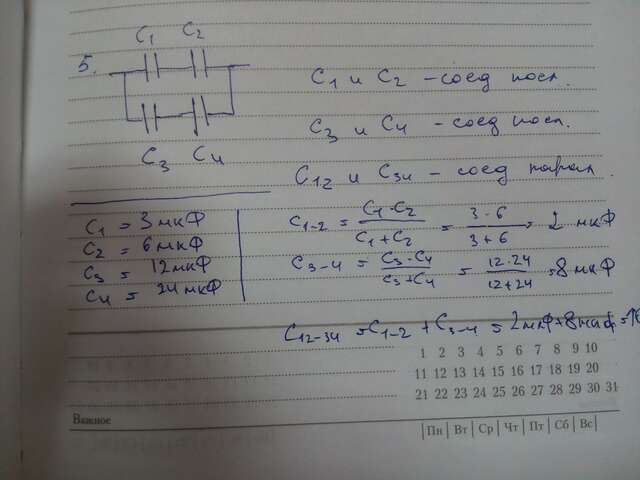 5.
C₁ C₂
C₃ C₄
C₁ и C₂ – соед посл.
C₃ и C₄ – соед посл.
C₁₂ и C₃₄ – соед парал.
C₁ = 3 мкФ
C₂ = 6 мкФ
C₃ = 12 мкФ
C₄ = 24 мкФ
C₁₋₂ = C₁·C₂ / C₁+C₂ = 3·6 / 3+6 = 2 мкФ
C₃₋₄ = C₃·C₄ / C₃+C₄ = 12·24 / 12+24 = 8 мкФ
C₁₂₋₃₄ = C₁₋₂ + C₃₋₄ = 2мкФ+8мкФ=
1 2 3 4 5 6 7 8 9 10
11 12 13 14 15 16 17 18 19 20
21 22 23 24 25 26 27 28 29 30 31
Важное
Пн | Вт | Ср | Чт | Пт | Сб | Вс